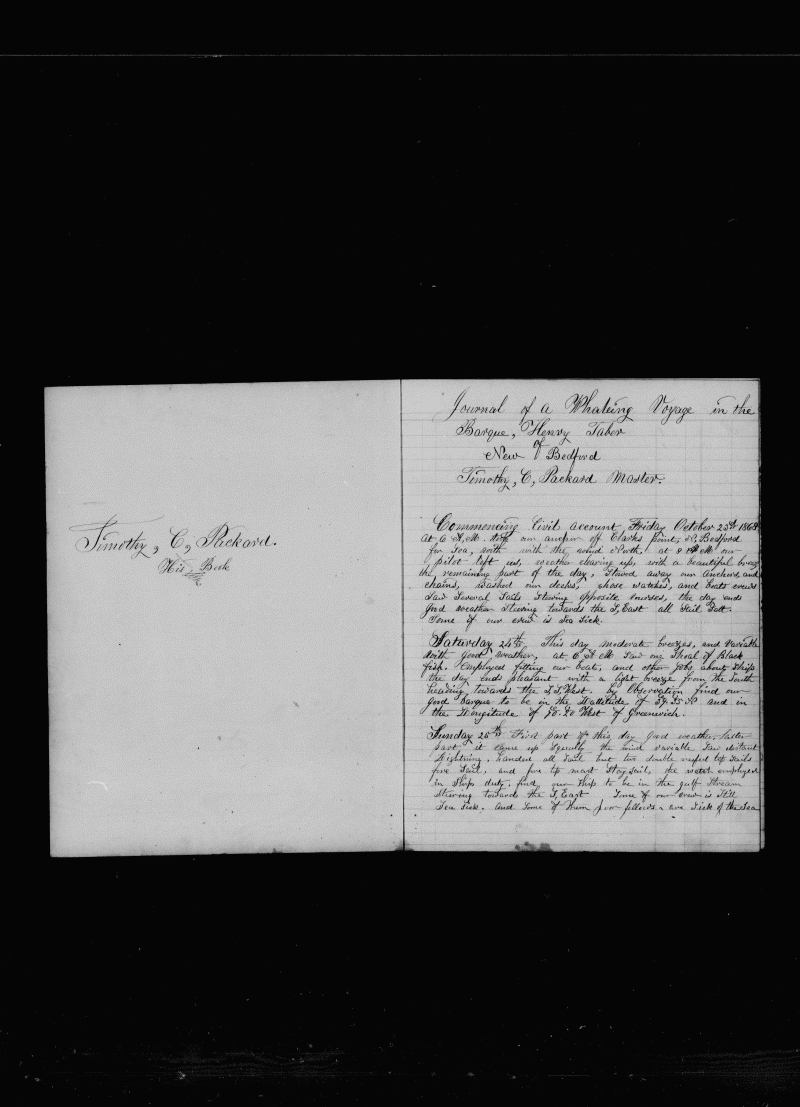 Timothy, C, Packard.
His Book
Journal of a Whaleing Voyage in the
Barque, Henry Taber
of
New Bedford
Timothy, C, Packard Master.
Commencing Civil account Friday October 23d 1868
at 6 A, M. took our anchor off Clarks point, N, Bedford
for Sea, with the wind North. at 8 AM our
pilot left us, weather clearing up, with a beautiful breeze
the remaining part of the day, Stowed away our Anchors, and
chains, washed our decks, chose watches, and boats crews
Saw Several Sails Steering opposite courses, the day ends
good weather Steering towards the S, East all Sail Sett.
Some of our crew is Sea Sick.
Saturday 24th, This day moderate breezes, and variable
with good weather, at 6 AM Saw one Shoal of Black
fish. Employed fitting our boats, and other jobs about Ship
the day ends pleasant with a light breeze from the South
heading towards the S, S, West. by Observation find our
good barque to be in the Lattitude of 39.35 N and in
the Longitude of West of Greenwich.
Sunday 25th First part of this day good weather, latter
part it came up Squally the wind variable Saw distant
Lightning, handed all Sail but two double reefed top Sails
fore Sail, and fore top mast Stay Sail, the watch employed
in Ships duty, find our Ship to be in the gulf Stream
Steering towards the S, East Some of our crew is Still
Sea Sick. And Some of them poor fellows are Sick of the Sea